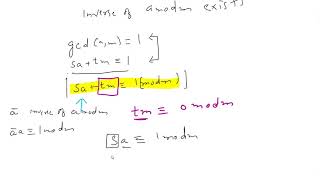 Inverse of a mod m exists
gcd(a,m) = 1
sa + tm = 1
sa + tm ≡ 1 (mod m)
ā inverse of a mod m
tm ≡ 0 mod m
āa ≡ 1 mod m
sa ≡ 1 mod m